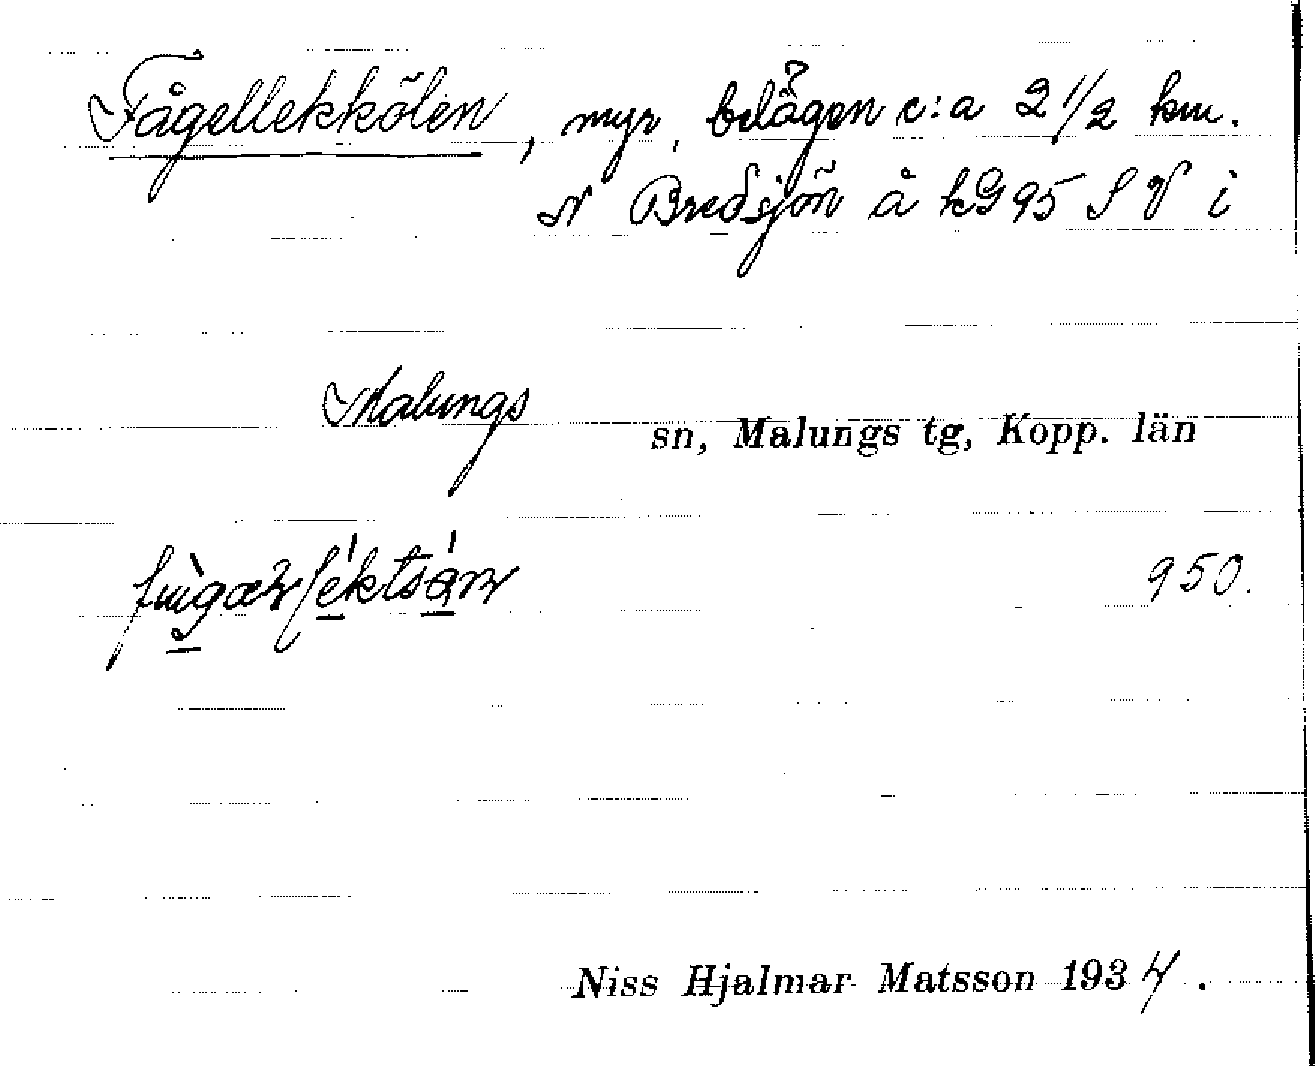 Fågellekkölen, myr, belägen c:a 2 1/2 km.
N Bredsjön å kG 95 S V i
Malungs sn, Malungs tg, Kopp. län
950.
Niss Hjalmar Matsson 1934.